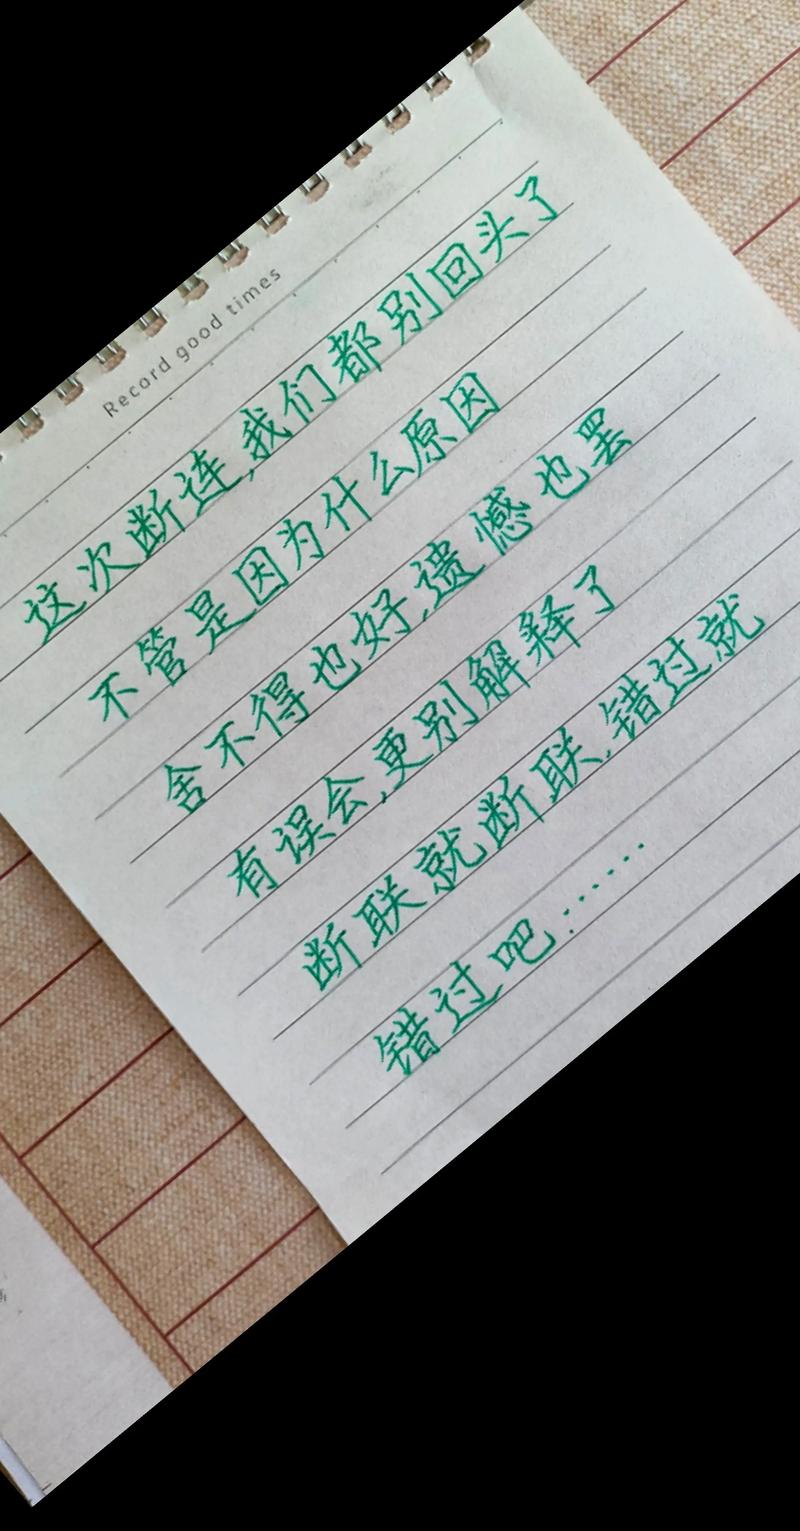 Record good times
这次断连,我们都别回头了
不管是因为什么原因
舍不得也好,遗憾也罢
有误会,更别解释了
断联就断联,错过就
错过吧……